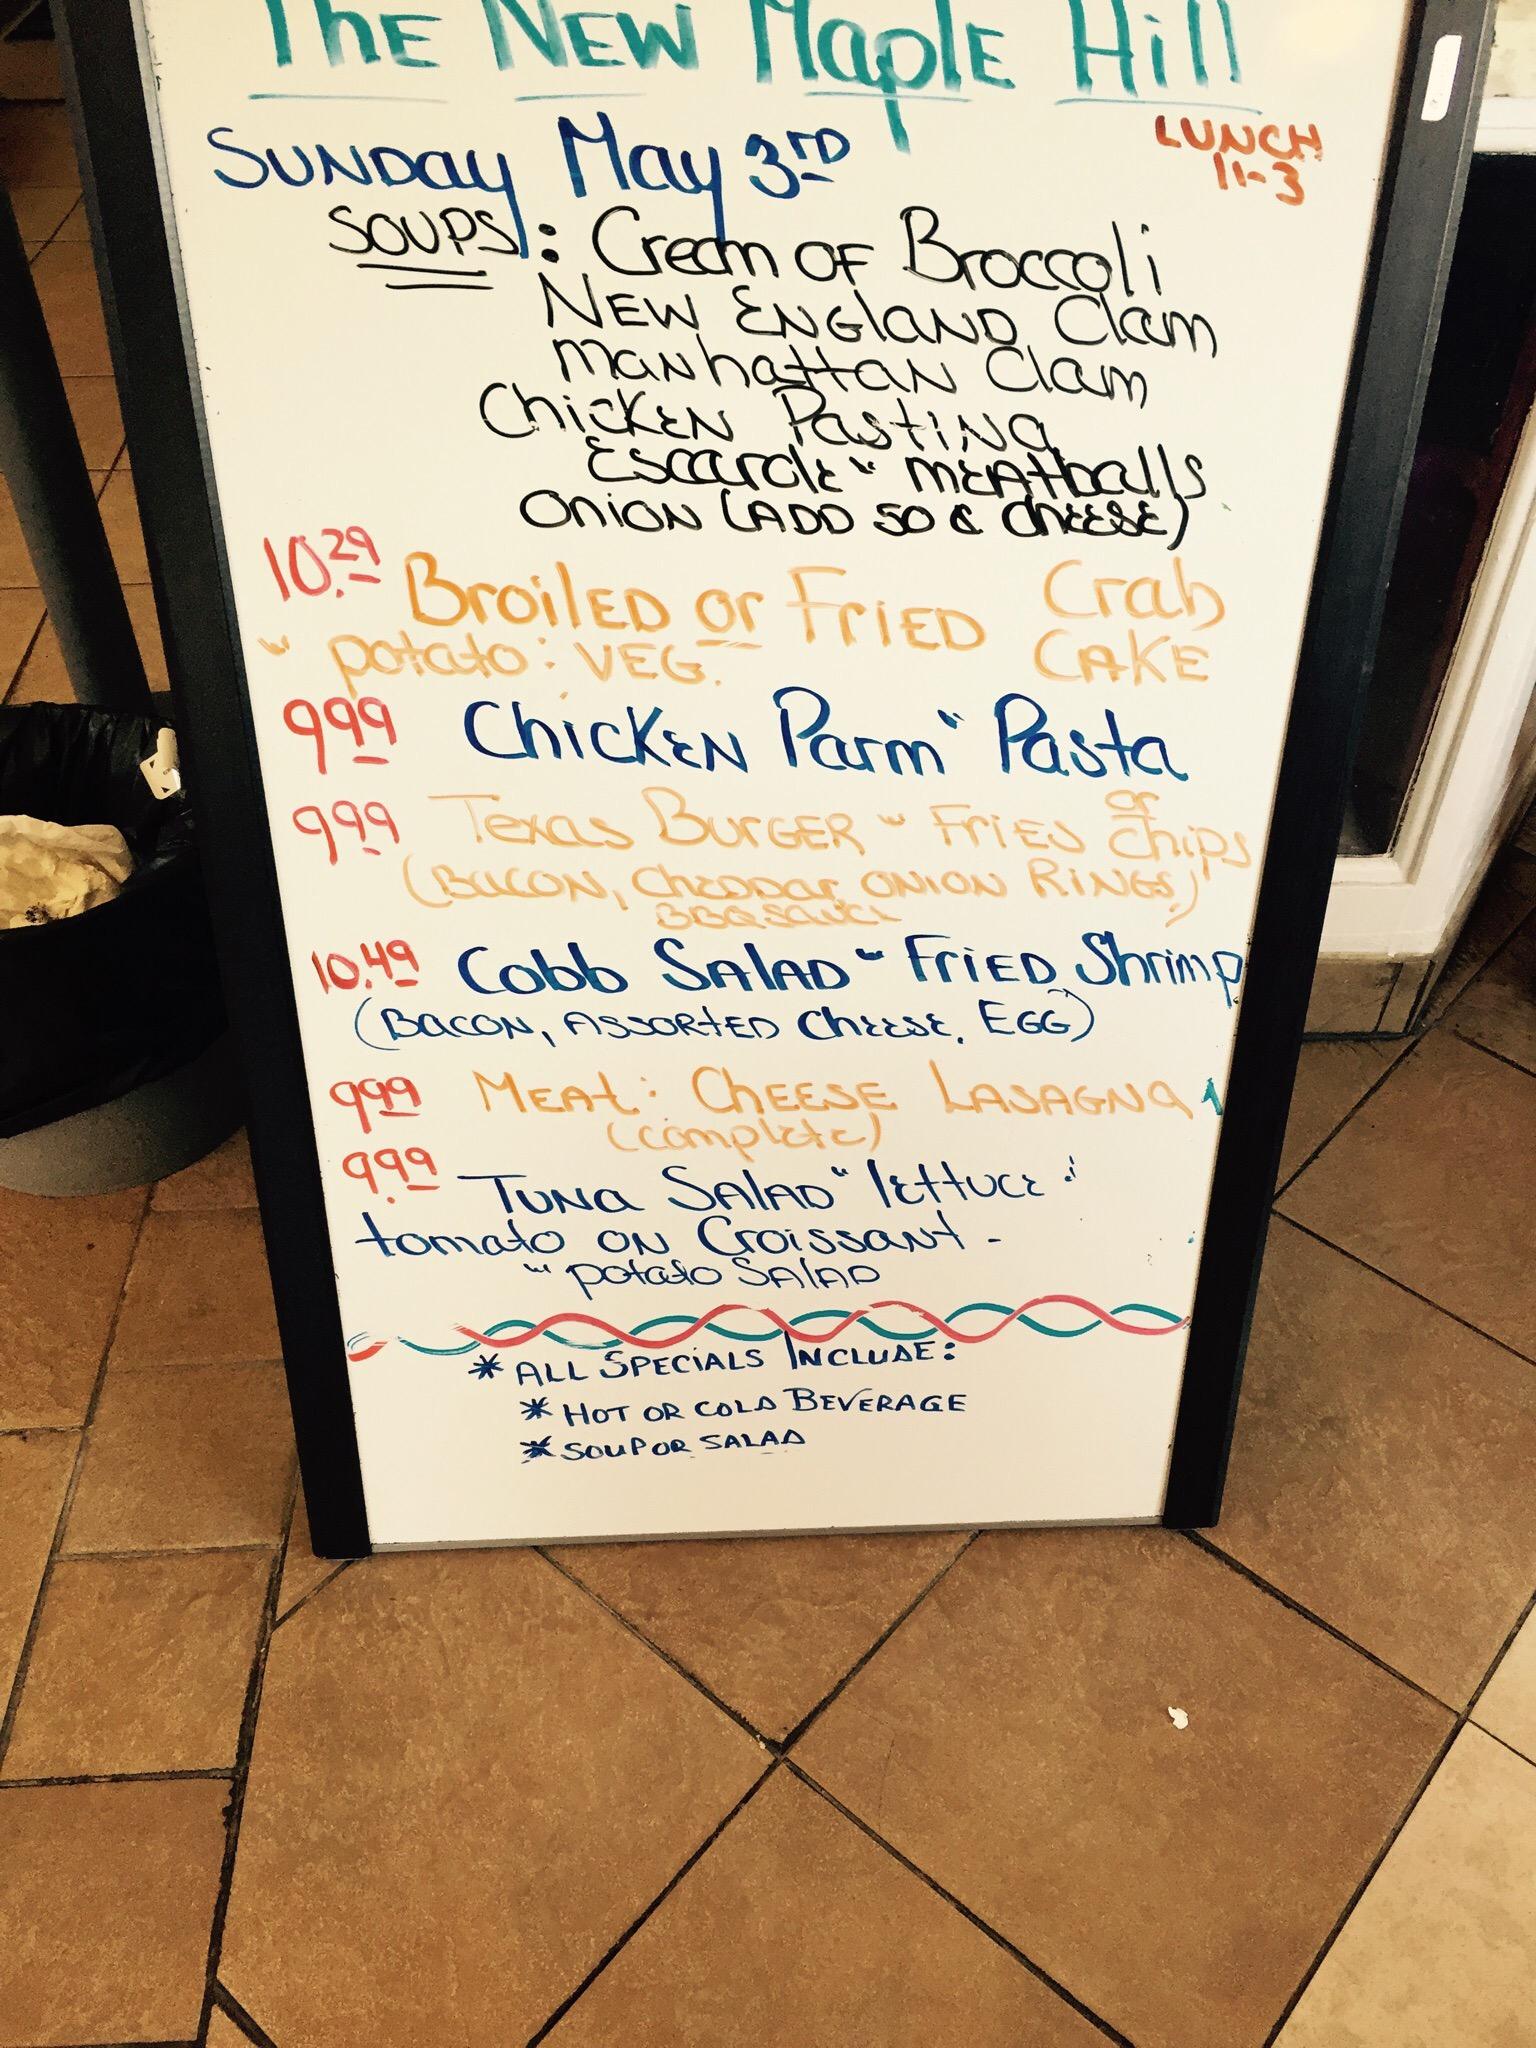 The New Maple Hill
Sunday May 3RD
LUNCH
11-3
Soups: Cream of Broccoli
New England Clam
Manhattan Clam
Chicken Pastina
Escarole w meatballs
Onion (ADD 50¢ cheese)
10.29 Broiled or Fried Crab
w potato : VEG. CAKE
9.99 Chicken Parm w Pasta
9.99 Texas Burger w Fries or
chips
(Bacon, Cheddar, Onion Rings,)
BBQ Sauce
10.49 Cobb Salad w Fried Shrimp
(Bacon, Assorted Cheese, Egg)
9.99 Meat : Cheese Lasagna
(complete)
9.99 Tuna Salad w lettuce :
tomato on Croissant -
w potato Salad
* ALL SPECIALS INCLUDE:
* HOT OR COLD BEVERAGE
* SOUP OR SALAD